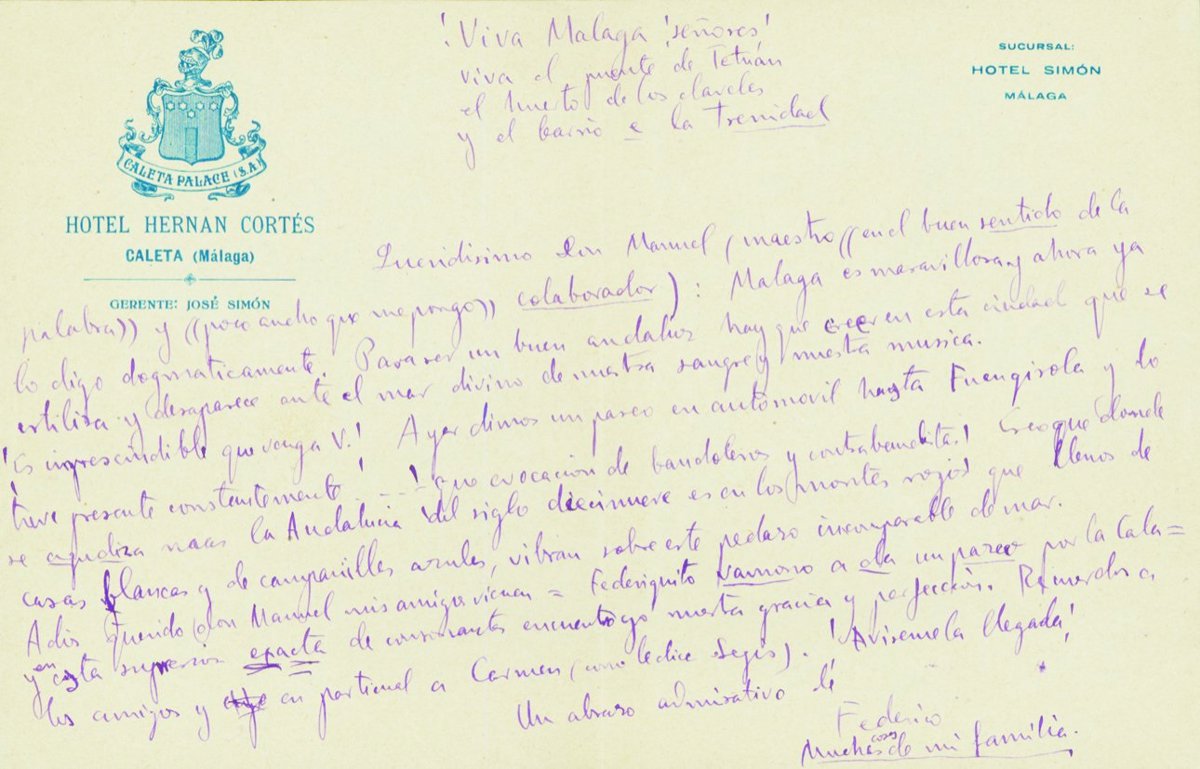 CALETA PALACE (S.A.)
HOTEL HERNAN CORTÉS
CALETA (Málaga)
GERENTE: JOSÉ SIMÓN
SUCURSAL:
HOTEL SIMÓN
MÁLAGA
¡Viva Malaga señores!
viva el puente de Tetuán
el huerto de los claveles
y el barrio e la Trenidad
Queridisimo Don Manuel (maestro ((en el buen sentido de la
palabra)) y ((poco ancho que me pongo)) colaborador): Malaga es maravillosa y ahora ya
lo digo dogmaticamente. Para ser un buen andaluz hay que creer en esta ciudad que se
estiliza y desaparece ante el mar divino de nuestra sangre y nuestra musica.
¡Es imprescindible que venga V.! Ayer dimos un paseo en automovil hasta Fuengirola y lo
tuve presente constentemente. ¡que evocacion de bandoleros y contrabandista! Creo que donde
se agudiza mas la Andalucia del siglo diecinueve es en los montes rojos que llenos de
casas blancas y de campanilles azules, vibran sobre este pedazo incomparable de mar.
Adios querido Don Manuel mis amigos vienen = Federiquito vamono a da un paseo por la Cala=
y en esta supresion exacta de consonantes encuentro yo nuestra gracia y perfeccion. Recuerdos a
los amigos y en particual a Carmen (como le dice Segis). ¡Aviseme la llegada!
Un abrazo admirativo de
Federico
Muchas cosas de mi familia.